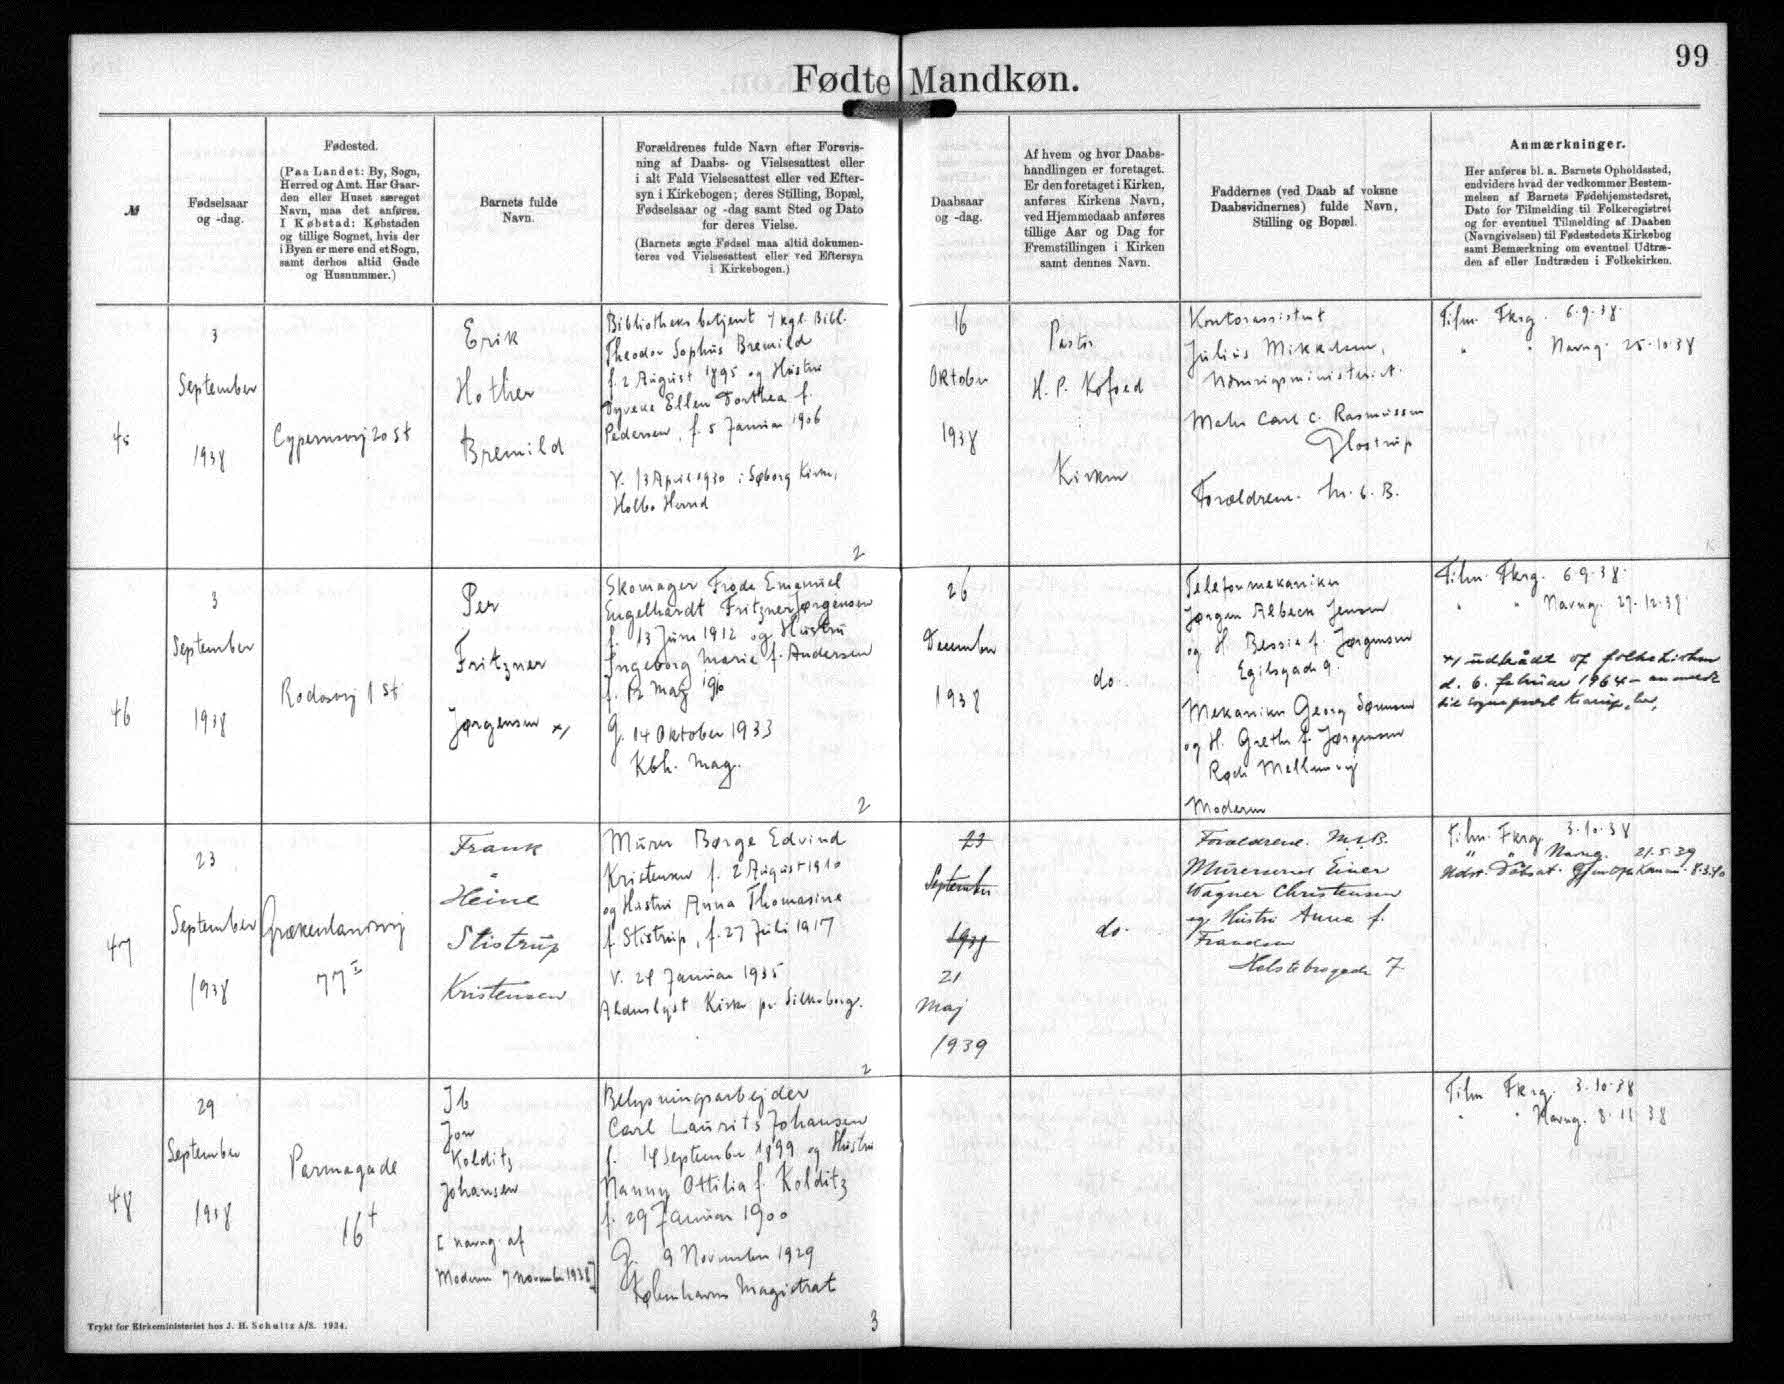 99
Fødte Mandkøn.
№
Fødselsaar
og -dag.
Fødested.
(Paa Landet: By, Sogn,
Herred og Amt. Har Gaar-
den eller Huset særeget
Navn, maa det anføres.
I Købstad: Købstaden
og tillige Sognet, hvis der
i Byen er mere end et Sogn,
samt derhos altid Gade
og Husnummer.)
Barnets fulde
Navn.
Forældrenes fulde Navn efter Forevis-
ning af Daabs- og Vielsesattest eller
i alt Fald Vielsesattest eller ved Efter-
syn i Kirkebogen; deres Stilling, Bopæl,
Fødselsaar og -dag samt Sted og Dato
for deres Vielse.
(Barnets ægte Fødsel maa altid dokumen-
teres ved Vielsesattest eller ved Eftersyn
i Kirkebogen.)
Daabsaar
og -dag.
Af hvem og hvor Daabs-
handlingen er foretaget.
Er den foretaget i Kirken,
anføres Kirkens Navn,
ved Hjemmedaab anføres
tillige Aar og Dag for
Fremstillingen i Kirken
samt dennes Navn.
Faddernes (ved Daab af voksne
Daabsvidnernes) fulde Navn,
Stilling og Bopæl.
Anmærkninger.
Her anføres bl. a. Barnets Opholdssted,
endvidere hvad der vedkommer Bestem-
melsen af Barnets Fødehjemstedsret,
Dato for Tilmelding til Folkeregistret
og for eventuel Tilmelding af Daaben
(Navngivelsen) til Fødestedets Kirkebog
samt Bemærkning om eventuel Udtræ-
den af eller Indtræden i Folkekirken.
45
3
September
1938
Cypernsvej 20 St
Erik
Hother
Bremild
Bibliotheksbetjent v/ kgl. Bibl.
Theodor Sophus Bremild
f. 2 August 1895 og Hustru
Dyveke Ellen Dorthea f.
Pedersen, f. 5 Januar 1906
V. 13 April 1930 i Søborg Kirke,
Holbo Herred
2
16
Oktober
1938
Pastor
H. P. Kofoed
Kirken
Kontorassistent
Julius Mikkelsen,
Maler Carl C. Rasmussen
Glostrup
Forældrene. M. b. B.
Tilm. Fkrg. 6.9.38.
" " Navng. 25.10.38
46
3
September
1938
Rodosvej 1 St
Per
Fritzner
Jørgensen x/
Skomager Frode Emanuel
Engelhardt Fritzner Jørgensen
f. 13 Juni 1912 og Hustru
Ingeborg Marie f. Andersen
f. 12 Maj 1910
G. 14 Oktober 1933
Kbh. Mag.
2
26
December
1938
do.
Telefonmekaniker
Jørgen Albeck Jensen
og H. Bessie f. Jørgensen
Egilsgade 9.
Mekaniker Georg Sørensen
og H. Grethe f. Jørgensen
Røde Mellemvej
Moderen
Tilm. Fkrg. 6.9.38.
" " Navng. 27.12.38
x/ udtrådt af folkekirken
d. 6. februar 1964 - anmeldt
til sognepræst
47
23
September
1938
Grækenlandsvej
77 I
Frank
Heine
Stistrup
Kristensen
Murer Børge Edvind
Kristensen f. 2 August 1910
og Hustru Anna Thomasine
f. Stistrup, f. 27 Juli 1917
V. 24 Januar 1935
Alderslyst Kirke pr. Silkeborg.
2
23
September
1938
21
Maj
1939
do.
Forældrene. M. b. B.
Murersvend Einer
Wagner Christensen
og Hustru Anna f.
Frandsen
Holstebrogade 7
Tilm. Fkrg. 3.10.38
" " Navng. 21.5.39
Udst. Dåbsat. 8.3.40
48
29
September
1938
Parmagade
16 t
Ib
Jon
Kolditz
Johansen
[navng. af
Moderen 7 November 1938]
Belysningsarbejder
Carl Laurits Johansen
f. 14 September 1899 og Hustru
Nanny Ottilia f. Kolditz
f. 29 Januar 1900
G. 9 November 1929
Københavns Magistrat
3
Tilm Fkrg. 3.10.38
" " Navng. 8.11.38
Trykt for Kirkeministeriet hos J. H. Schultz A/S. 1934.